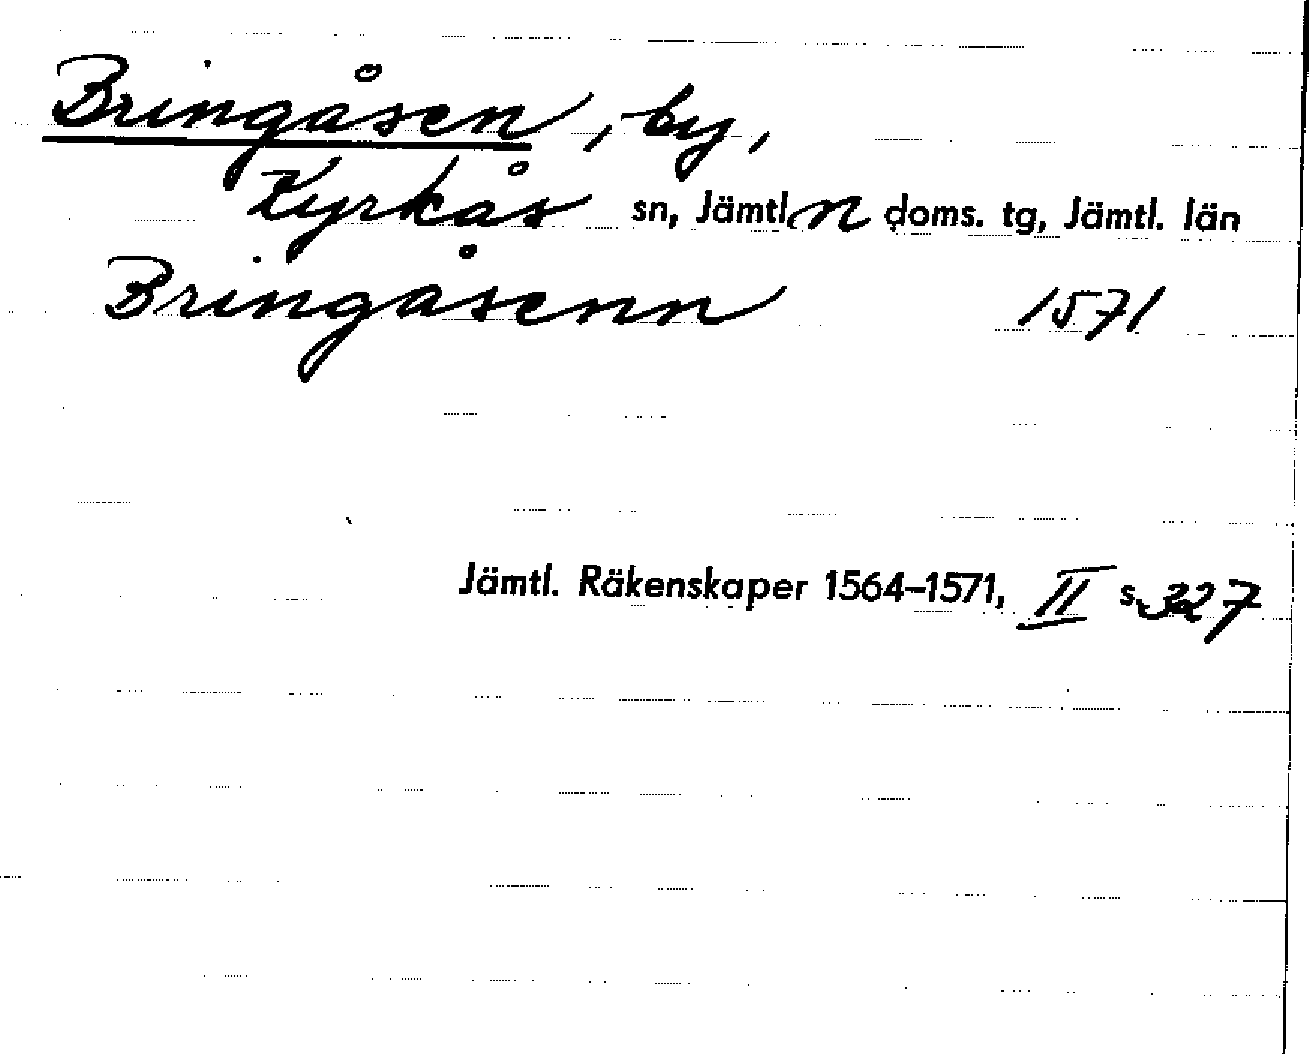 Bringåsen, by,
Kyrkås sn, Jämtl. n doms. tg, Jämtl. län
Bringåsenn 1571
Jämtl. Räkenskaper 1564–1571, II s. 327